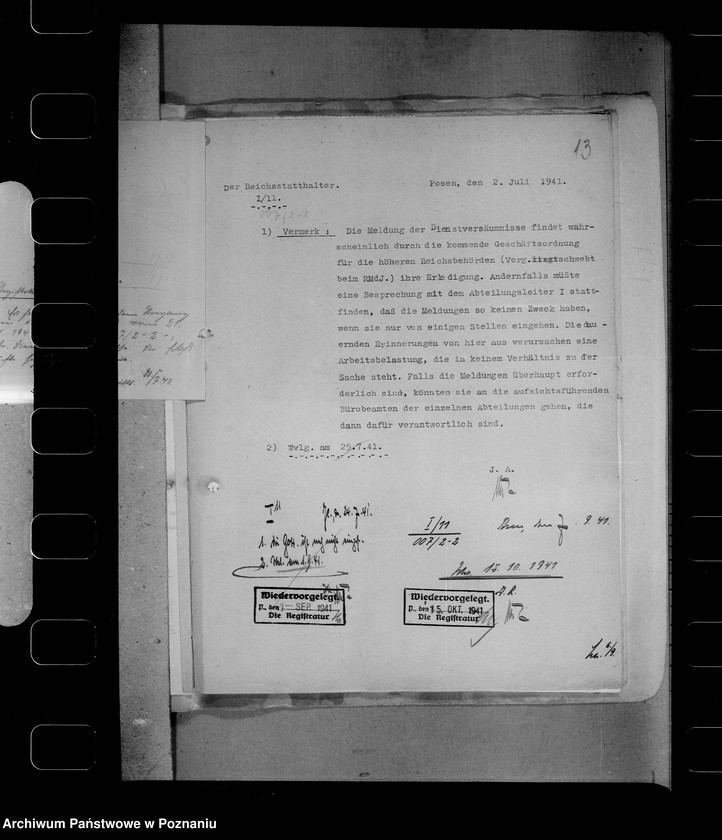 13
Der Reichsstatthalter.
Posen, den 2. Juli 1941.
I/11.
007/2-2
1) Vermerk : Die Meldung der Dienstversäumnisse findet wahr-
scheinlich durch die kommende Geschäftsordnung
für die höheren Reichsbehörden (Vorg. schwebt
beim RMdJ.) ihre Erledigung. Andernfalls müßte
eine Besprechung mit dem Abteilungsleiter I statt-
finden, daß die Meldungen so keinen Zweck haben,
wenn sie nur von einigen Stellen eingehen. Die dau -
ernden Erinnerungen von hier aus verursachen eine
Arbeitsbelastung, die in keinem Verhältnis zu der
Sache steht. Falls die Meldungen überhaupt erfor-
derlich sind, könnten sie an die aufsichtsführenden
Bürobeamten der einzelnen Abteilungen gehen, die
dann dafür verantwortlich sind.
2) Wvlg. am 25.7.41.
J. A.
I/11
24.7.41.
1. die
2. am 1.9.41.
Wiedervorgelegt.
P., den 1- SEP. 1941
Die Registratur
I/11
007/2-2
den 9.41.
15.10.1941
Wiedervorgelegt.
P., den 15. OKT. 1941
Die Registratur
Archiwum Państwowe w Poznaniu